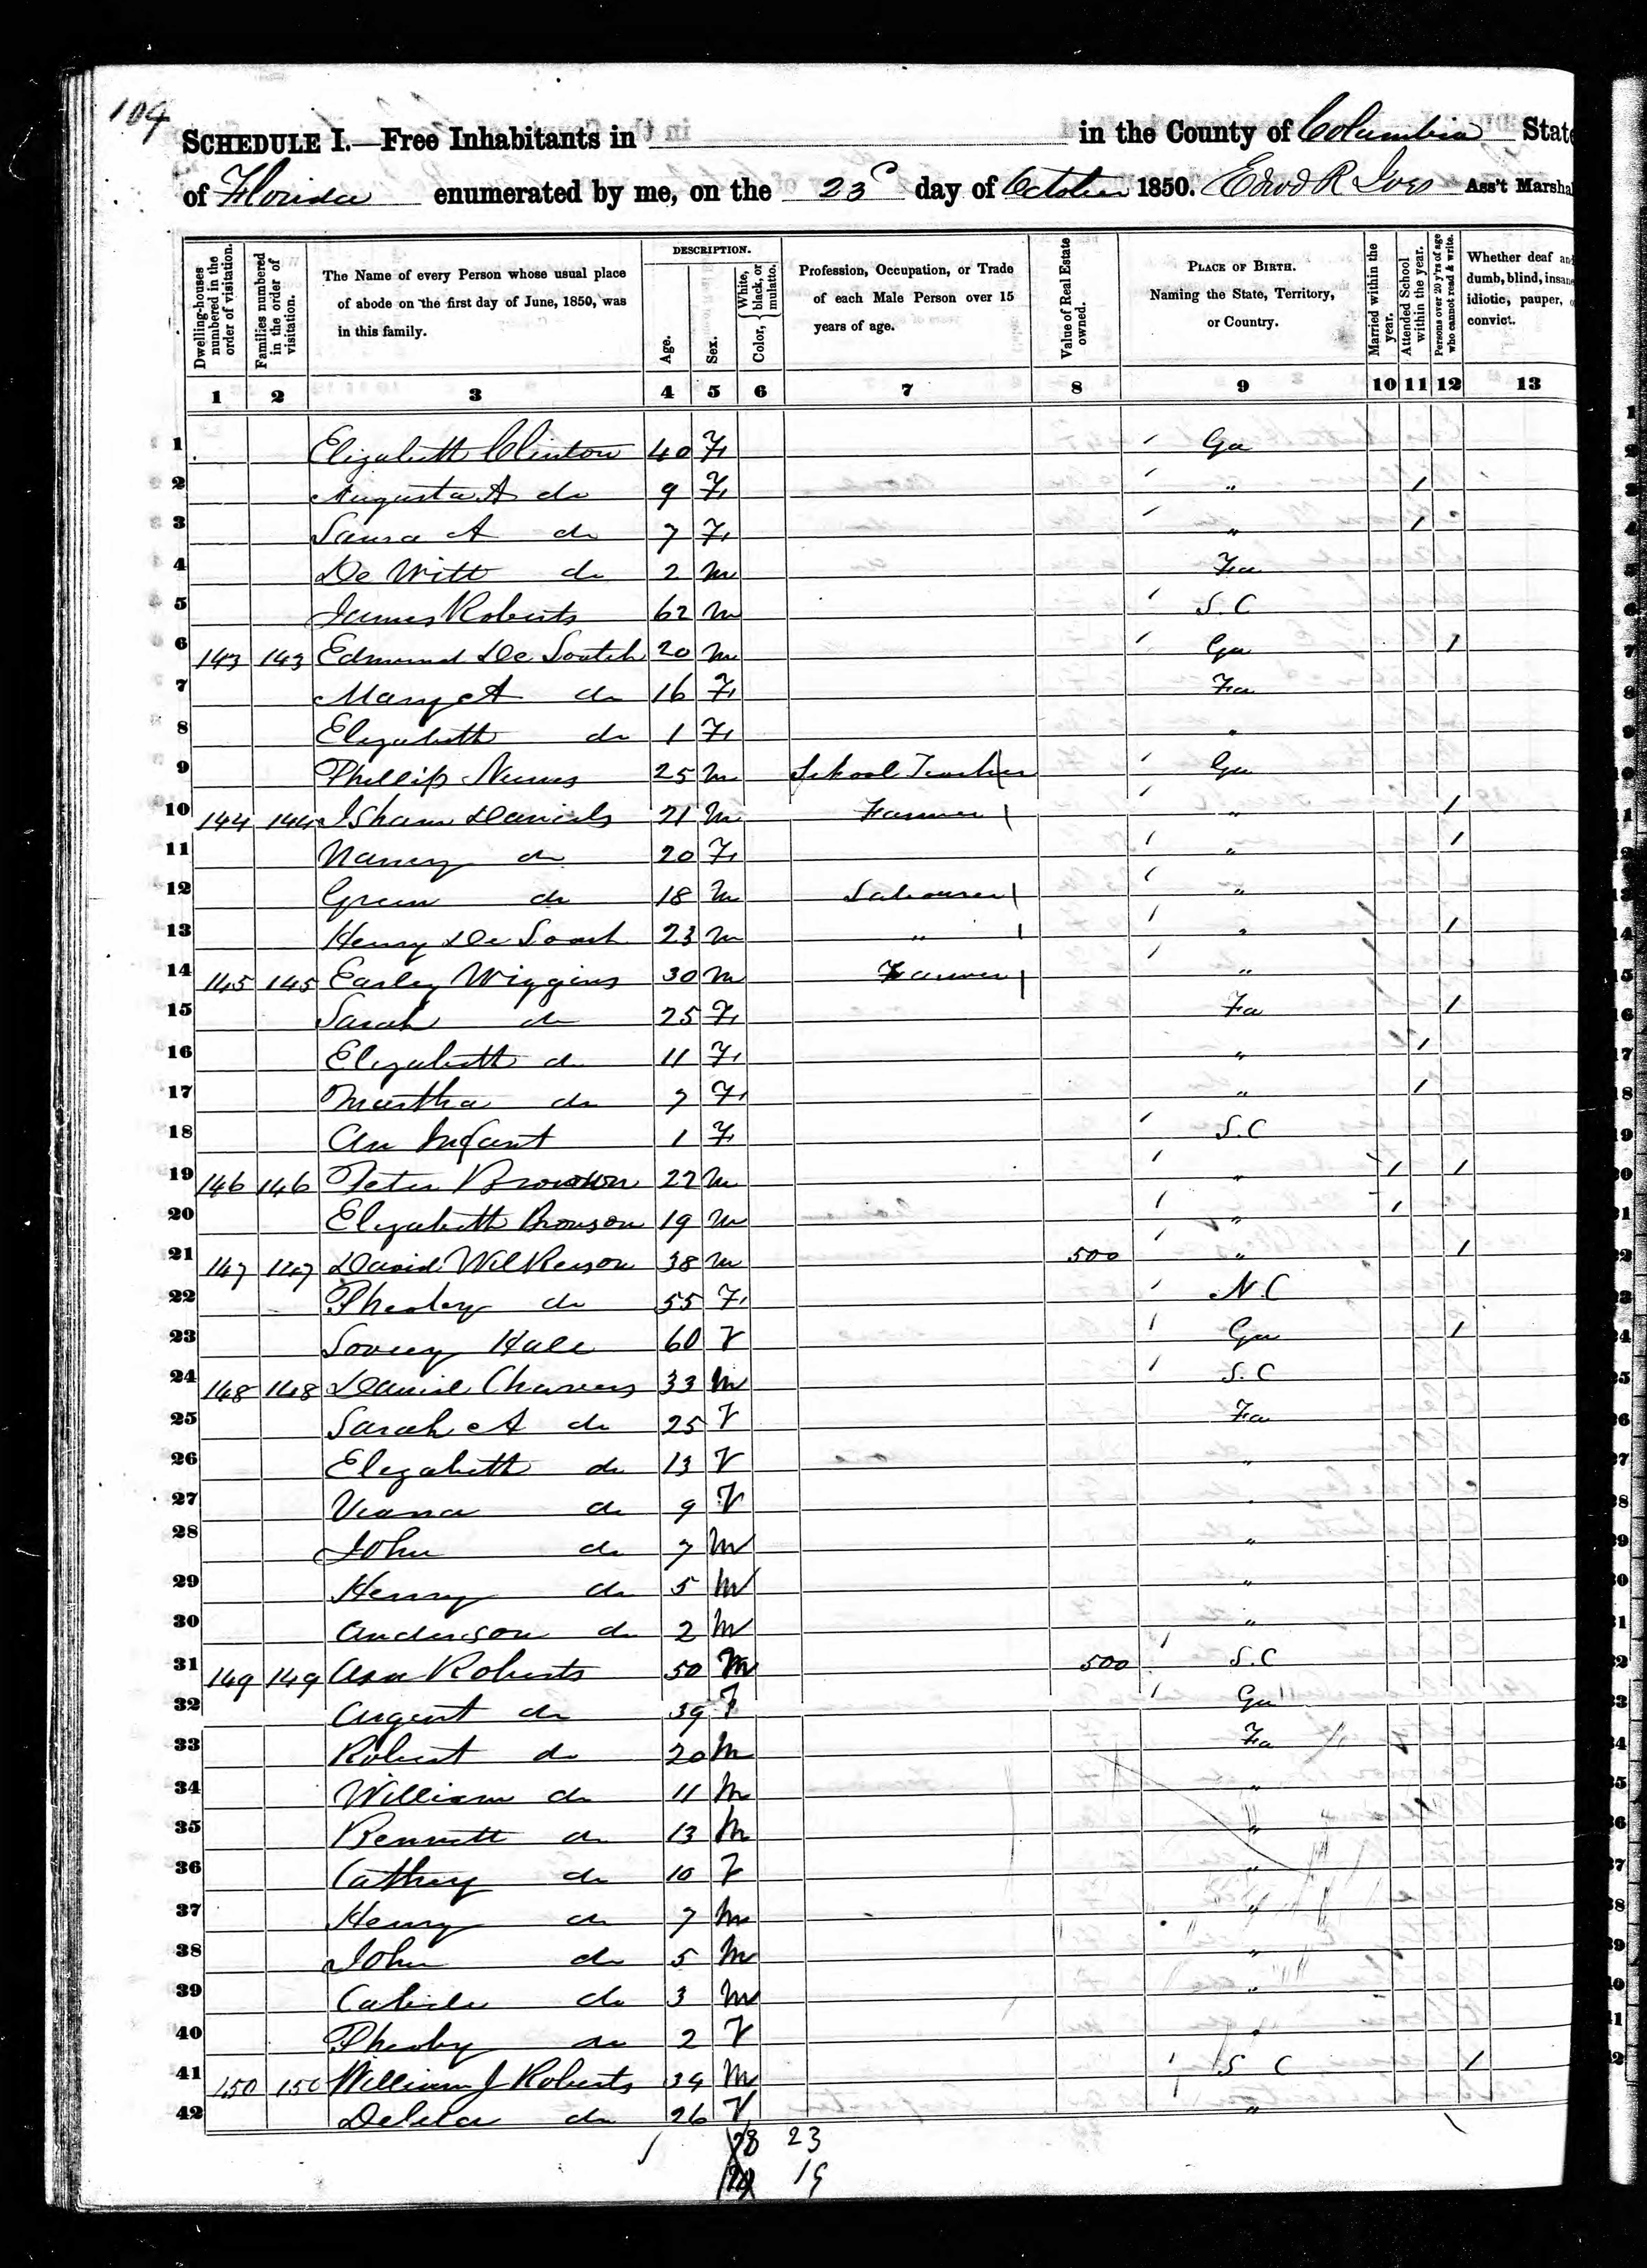 104
SCHEDULE I.—Free Inhabitants in in the County of Columbia State
of Florida enumerated by me, on the 23d day of October 1850. Edwd R Ives Ass't Marshal
Dwelling-houses numbered in the order of visitation.
Families numbered in the order of visitation.
The Name of every Person whose usual place of abode on the first day of June, 1850, was in this family.
DESCRIPTION.
Age.
Sex.
Color, { White, black, or mulatto.
Profession, Occupation, or Trade of each Male Person over 15 years of age.
Value of Real Estate owned.
PLACE OF BIRTH. Naming the State, Territory, or Country.
Married within the year.
Attended School within the year.
Persons over 20 y'rs of age who cannot read & write.
Whether deaf and dumb, blind, insane, idiotic, pauper, or convict.
1 2 3 4 5 6 7 8 9 10 11 12 13
1 Elizabeth Clinton 40 F ' Ga
2 Augusta A do 9 F ' " 1
3 Laura A do 7 F ' " 1
4 De Witt do 2 m Fa
5 James Roberts 62 m ' S.C
6 143 143 Edmund De Loatch 20 m ' Ga 1
7 Mary A do 16 F Fa
8 Elizabeth do 1 F "
9 Phillip 25 m School Teacher ' Ga
10 144 144 Isham Daniels 21 m Farmer ' " 1
11 Nancy do 20 F ' " 1
12 Green do 18 m Labourer ' "
13 Henry De 23 m " ' " 1
14 145 145 Earley Wiggins 30 m Farmer ' "
15 Sarah do 25 F Fa 1
16 Elizabeth do 11 F " 1
17 Martha do 7 F " 1
18 An Infant 1 F ' S.C
19 146 146 Peter 22 m ' " 1 1
20 Elizabeth Bronson 19 m ' " 1
21 147 147 David Wilkerson 38 m 500 ' " 1
22 do 55 F ' N.C
23 Hall 60 F ' Ga 1
24 148 148 Daniel 33 m ' S.C
25 Sarah A do 25 F Fa
26 Elizabeth do 13 F "
27 do 9 F "
28 John do 7 m "
29 Henry do 5 m "
30 Anderson do 2 m "
31 149 149 Asa Roberts 50 m 500 ' S.C
32 Argent do 39 F ' Ga
33 Robert do 20 m Fa
34 William do 11 m "
35 Bennett do 13 m "
36 Cathey do 10 F "
37 Henry do 7 m "
38 John do 5 m "
39 do 3 m "
40 Pheoby do 2 F "
41 150 150 William J Roberts 34 m ' S C 1
42 do 26 F ' "
23
19